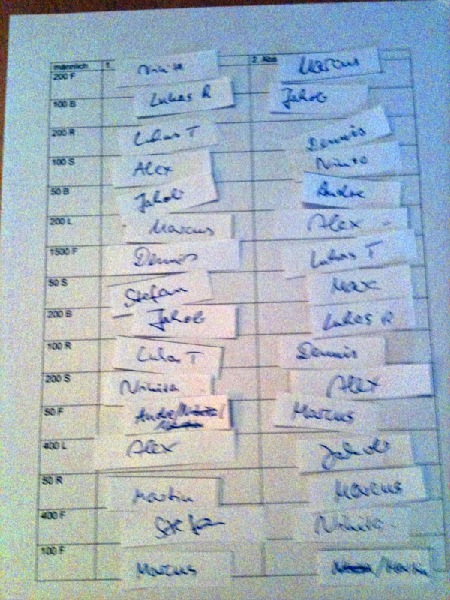 männlich 1. 2. Abs
200 F Nikita Marcus
100 B Lukas R Jakob
200 R Lukas T Dennis
100 S Alex Nikita
50 B Jakob Andre
200 L Marcus Alex
1500 F Dennis Lukas T
50 S Stefan Max
200 B Jakob Lukas R
100 R Lukas T Dennis
200 S Nikita Alex
50 F Andre/ Marcus
400 L Alex Jakob
50 R Martin Marcus
400 F Stefan Nikita
100 F Marcus /Martin